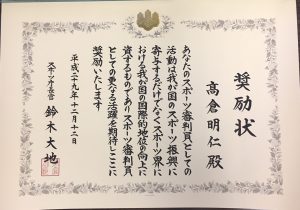 奨励状
高倉明仁殿
あなたのスポーツ審判員としての
活動は我が国のスポーツ振興に
寄与するだけでなくスポーツ界に
おける我が国の国際的地位の向上に
資するものでありスポーツ審判員
としての更なる活躍を期待しここに
奨励いたします
平成二十九年十二月十二日
スポーツ庁長官 鈴木大地